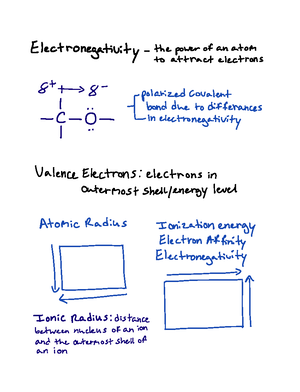 Electronegativity – the power of an atom
to attract electrons
δ⁺ ↦ δ⁻
– C – Ö –
polarized covalent
bond due to differances
in electronegativity
Valence Electrons: electrons in
outermost shell/energy level
Atomic Radius
Ionization energy
Electron Affinity
Electronegativity
Ionic Radius: distance
between nucleus of an ion
and the outermost shell of
an ion